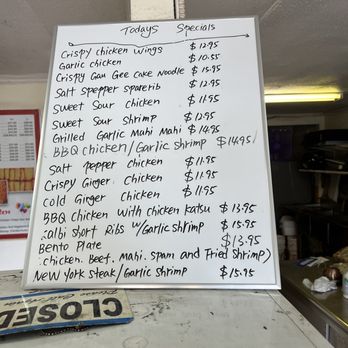 Todays Specials
Crispy chicken wings $12.95
Garlic chicken $10.55
Crispy Gau Gee Cake Noodle $15.95
Salt Spepper sparerib $12.95
Sweet Sour chicken $11.95
Sweet Sour Shrimp $12.95
Grilled Garlic Mahi Mahi $14.95
BBQ chicken/Garlic shrimp $14.95/
Salt pepper chicken $11.95
Crispy Ginger Chicken $11.95
Cold Ginger Chicken $11.95
BBQ Chicken With chicken katsu $13.95
calbi Short Ribs w/Garlic shrimp $15.95
Bento Plate $13.95
chicken. Beef. Mahi. Spam and Fried Shrimp)
New York Steak/Garlic shrimp $15.95
CLOSED